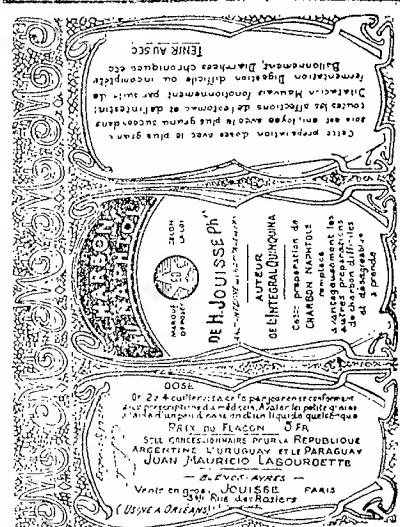 Cette préparation dosée avec le plus grand
soin est employée avec le plus grand succès dans
toutes les affections de l'estomac et de l'intestin:
Dilatation Mauvais fonctionnement par suite de
fermentation Digestion difficile ou incomplète
Ballonnement, Diarrhées chroniques etc
TENIR AU SEC
CHARBON
NAPHTOL
MARQUE
DÉPOSÉE
SELON
LA LOI
DE H. JOUISSE Phen
AUTEUR
DE L'INTEGRAL QUINQUINA
Cette préparation de
CHARBON NAPHTOLÉ
remplace
avantageusement les
autres préparations
de charbon difficiles
et désagréables
à prendre
DOSE
De 2 à 4 cuillers à café par jour en se conformant
aux prescriptions du médecin. Avaler les petits grains
à l'aide d'un peu d'eau ou d'un liquide quelconque
PRIX DU FLACON 5 FR
SEUL CONCESSIONNAIRE POUR LA REPUBLIQUE
ARGENTINE L'URUGUAY ET LE PARAGUAY
JUAN MAURICIO LABOURDETTE
BUENOS-AYRES
Vente en gros, JOUISSE PARIS
Rue des Rosiers
(USINE A ORLÉANS)